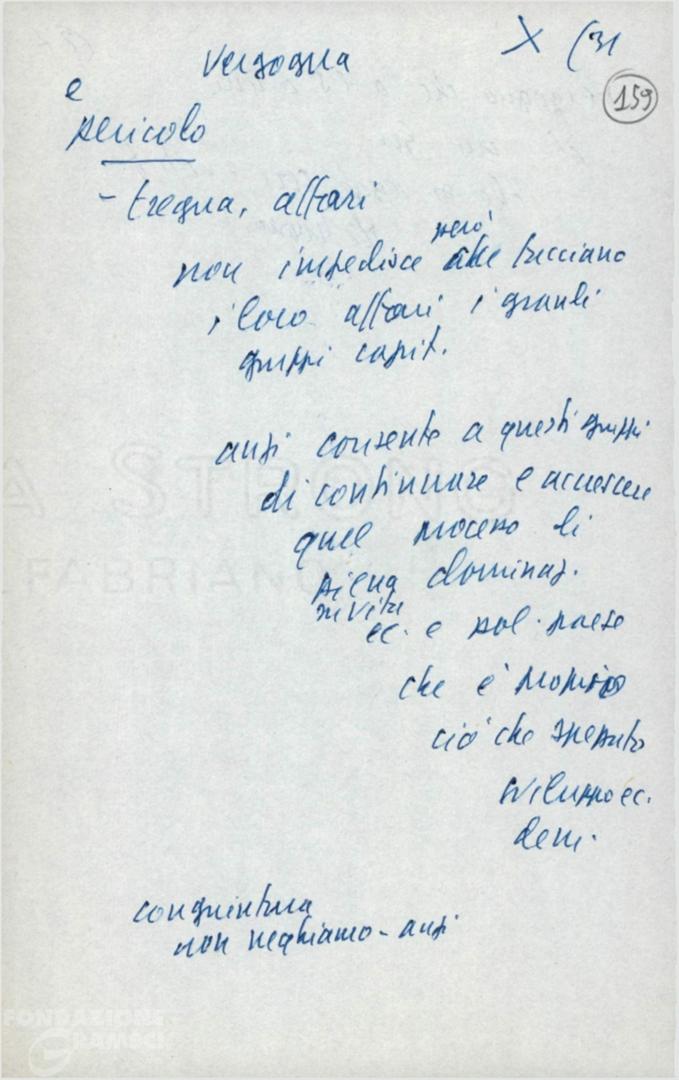 Vergogna X (31
e 159
pericolo
- tregua, affari
però
non impedisce che facciano
i loro affari i grandi
gruppi capit.
anzi consente a questi gruppi
di continuare e accrescere
quel processo di
piena dominaz.
su vita
ec. e pol. paese
che è proprio
ciò che
sviluppo ec.
dem.
congiuntura
non neghiamo - anzi
FONDAZIONE
GRAMSCI